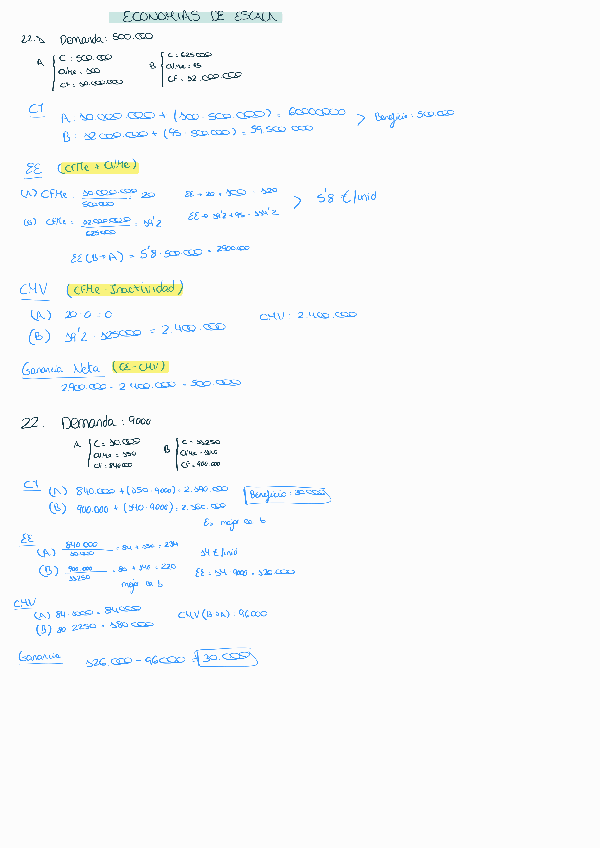 ECONOMIAS DE ESCALA
22.1 Demanda: 500.000
A C: 500.000
CVMe: 100
CF: 10.000.000
B C: 625000
CVMe: 95
CF: 12.000.000
CT
A: 10.000.000 + (100·500.000) = 60000000
B: 12.000.000 + (95·500.000) = 59.500.000
Beneficio: 500.000
EE (CFMe + CVMe)
(A) CFMe: 10.000.000 / 500.000 = 20 EE = 20 + 100 = 120
(B) CFMe = 12.000.000 / 625000 = 19'2 EE = 19'2 + 95 = 114'2
5'8 €/unid
EE (B→A) = 5'8 · 500.000 = 2900.000
CMV (CFMe · Inactividad)
(A) 20·0 = 0 CMV: 2.400.000
(B) 19'2 · 125000 = 2.400.000
Ganancia Neta (EE - CMV)
2.900.000 - 2.400.000 = 500.000
22. Demanda: 9000
A C = 10.000
CVMe = 150
CF: 840000
B C = 11250
CVMe = 140
CF = 900.000
CT (A) 840.000 + (150·9000) = 2.190.000 Beneficio: 30000
(B) 900.000 + (140·9000) = 2.160.000
Es mejor la b
EE
(A) 840.000 / 10.000 = 84 + 150 = 234 14 €/unid
(B) 900.000 / 11250 = 80 + 140 = 220 EE = 14·9000 = 126.000
mejor la b
CMV
(A) 84·1000 = 84000 CMV (B→A) = 96000
(B) 80·2250 = 180000
Ganancia 126.000 - 96000 = 30.000